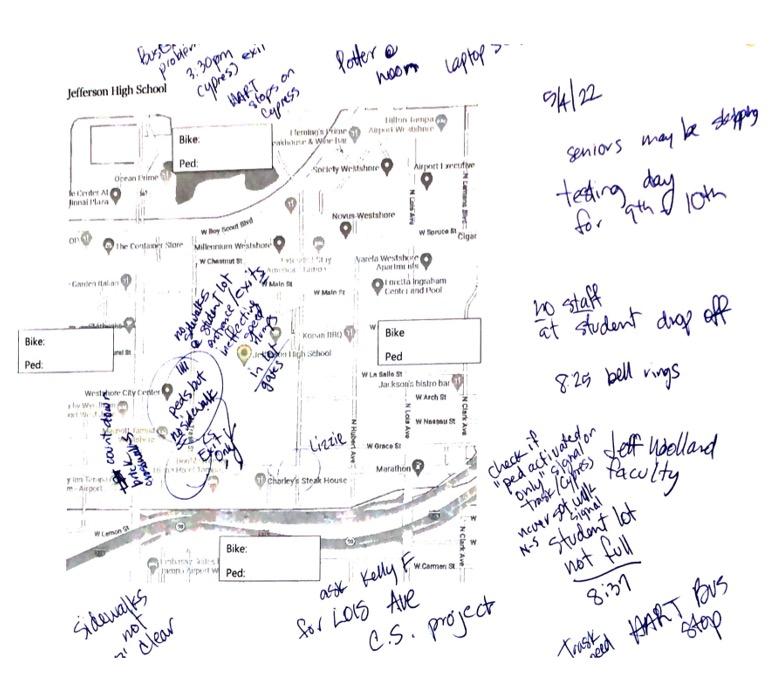 BUS
problem
3:30pm
Cypress exit
HART
stops on
Cypress
Potter @
noon
Laptop
Jefferson High School
Bike:
Ped:
Fleming's Prime
Steakhouse & Wine Bar
Hilton Tampa
Airport Westshore
Ocean Prime
Society Westshore
Airport Executive
N Lois Ave
Novus Westshore
W Boy Scout Blvd
W Spruce St
Cigar
The Container Store
Millennium Westshore
W Chestnut St
Varela Westshore
Apartments
W Main St
W Main St
Loretta Ingraham
Center and Pool
no
sidewalks
@ student lot
entrance/exits
speed
in lot
gates
Bike:
Ped:
Jefferson High School
Bike:
Ped:
W La Salle St
Jackson's bistro bar
Westshore City Center
peds but
no sidewalk
W Arch St
W Nassau St
Exit
only
count down
crosswalks
Lizzie
N Hubert Ave
N Lois Ave
N Clark Ave
W Grace St
Marathon
Charley's Steak House
W Lemon St
Bike:
Ped:
N Clark Ave
W Carmen St
sidewalks
not
clear
ask Kelly F
for LOIS Ave
C.S. project
5/4/22
seniors may be skipping
testing day
for 9th & 10th
no staff
at student drop off
8:25 bell rings
check if
"ped activated
only" signal on
Trask/Cypress
never got walk
N-S signal
Jeff Woolland
faculty
student lot
not full
8:37
Trask
need HART BUS
stop